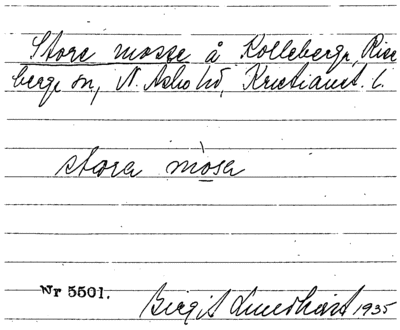 Store mosse å Kolleberga, Rise
berga sn, N. Åsbo hd, Kristianst. l.
stora mòsa
Nr 5501.
Birgit 1935